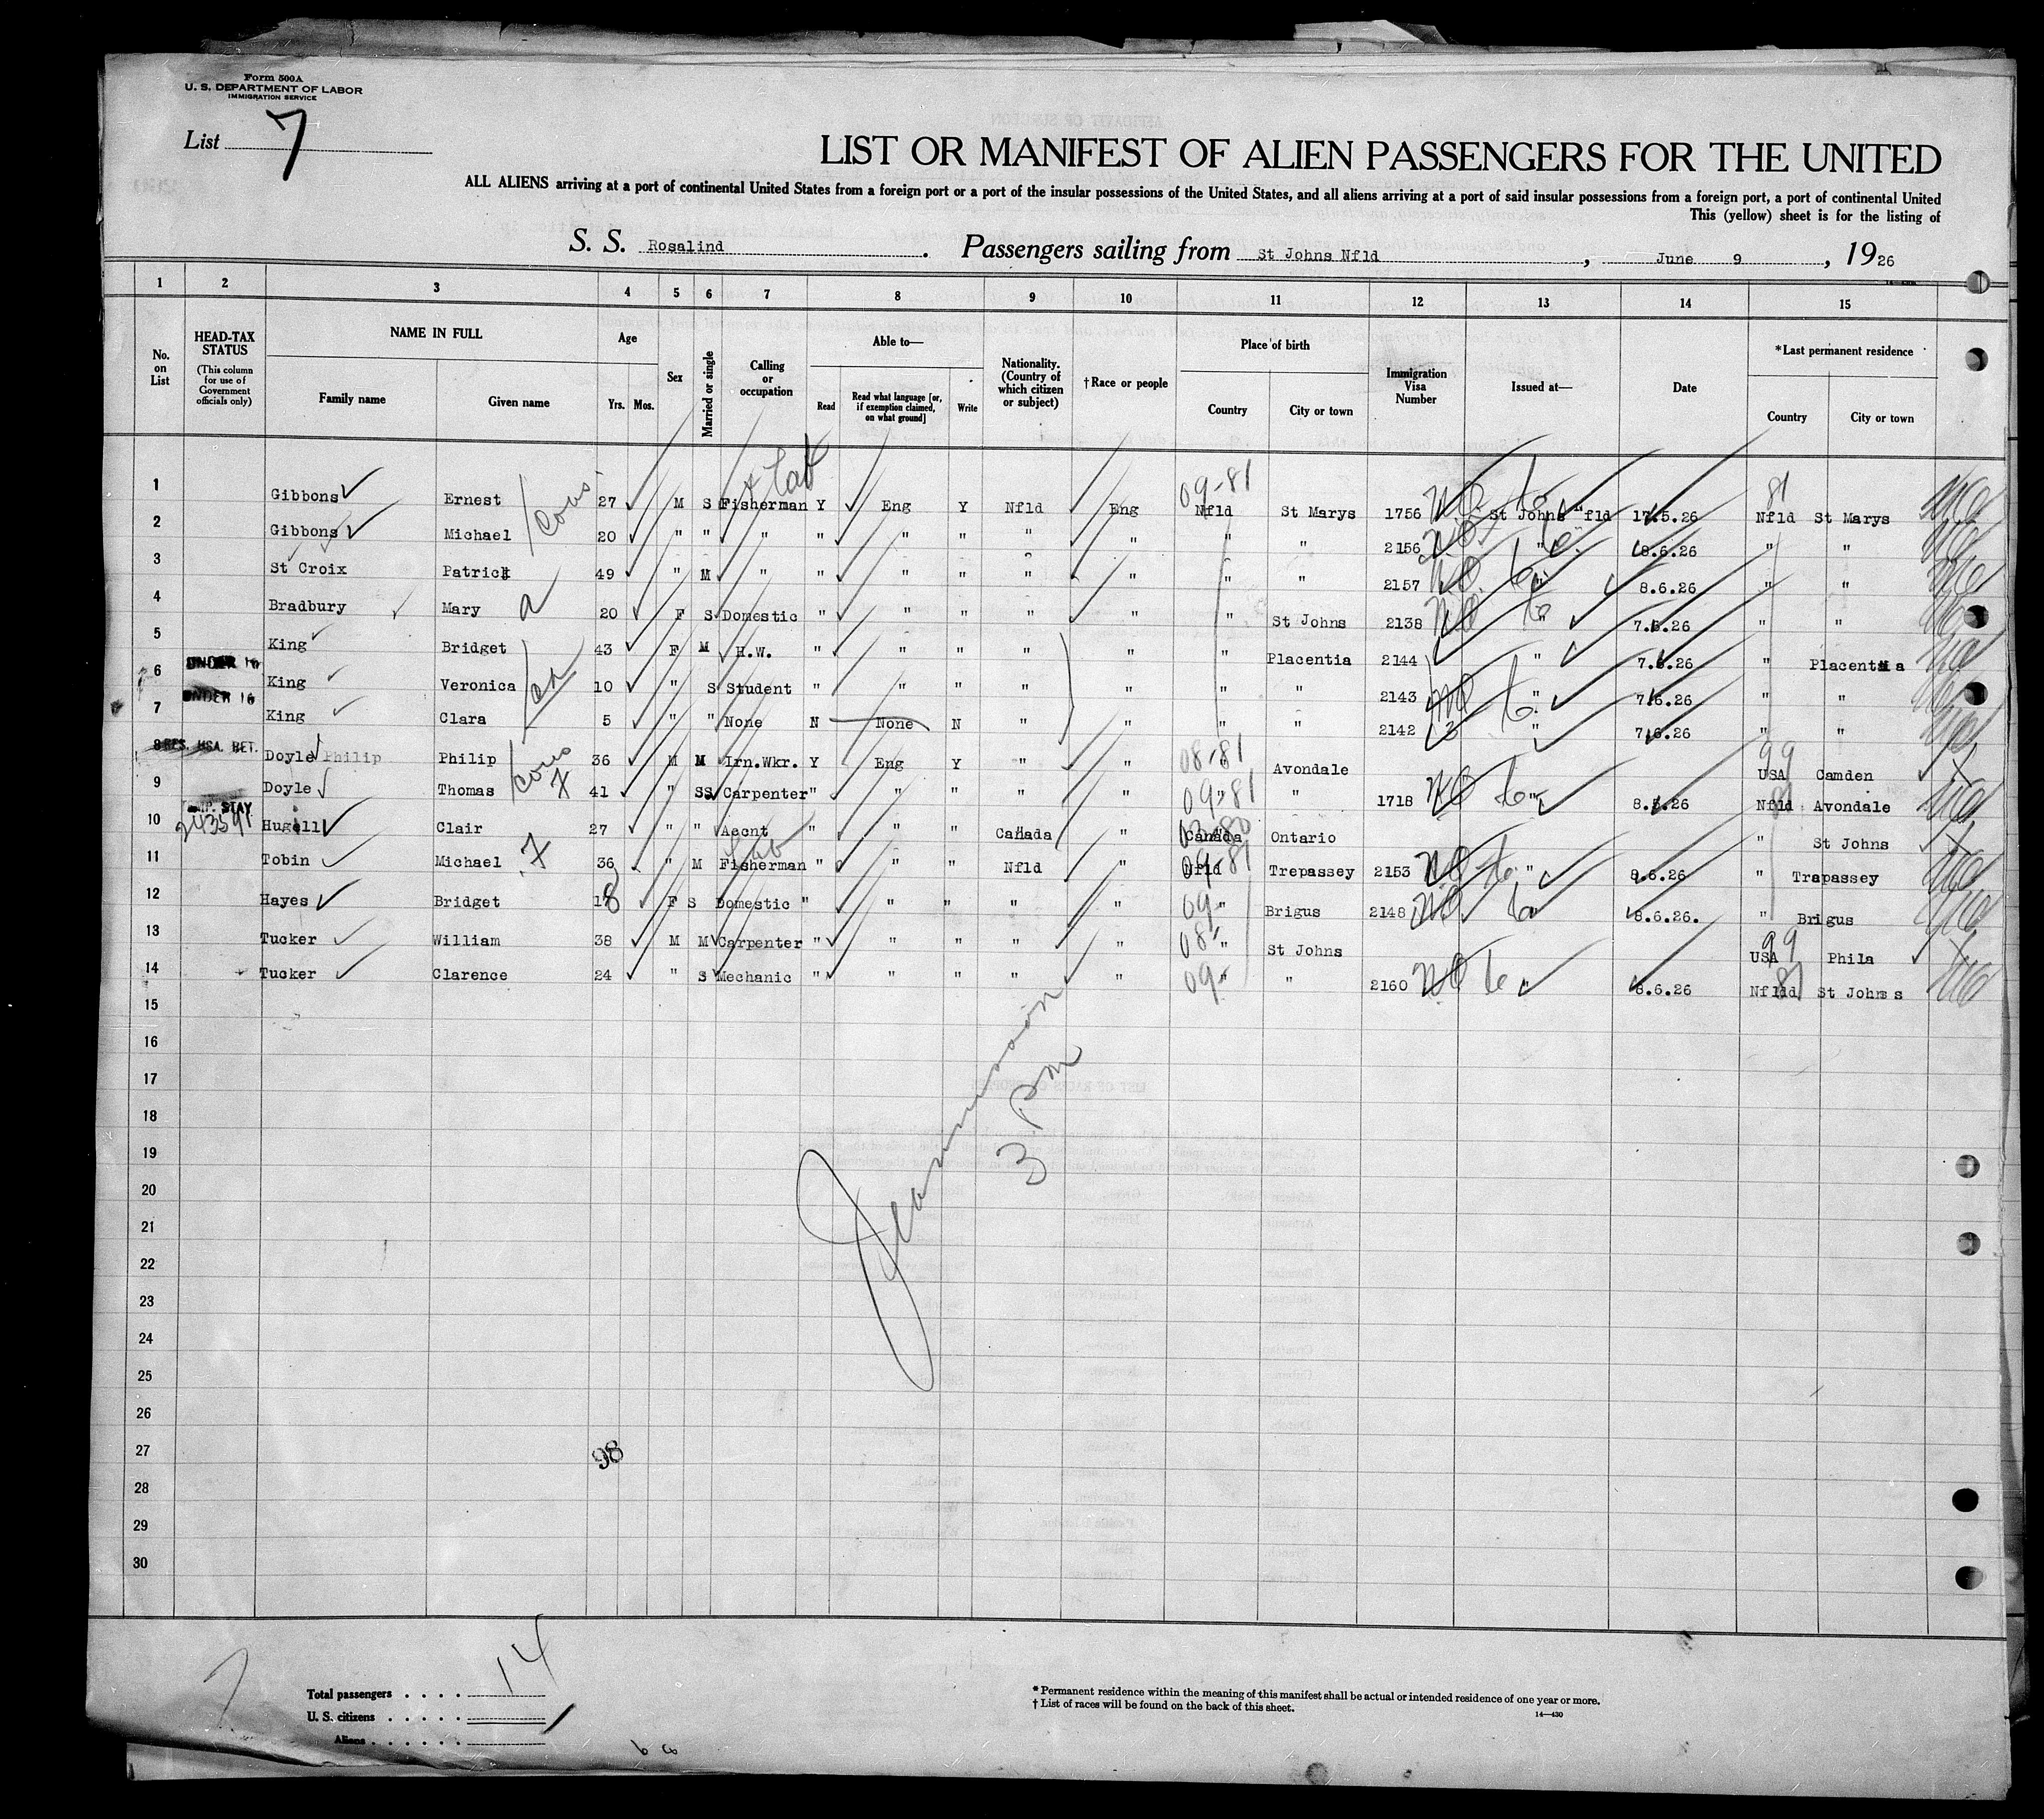 Form 500A
U. S. DEPARTMENT OF LABOR
IMMIGRATION SERVICE
List 7
LIST OR MANIFEST OF ALIEN PASSENGERS FOR THE UNITED
ALL ALIENS arriving at a port of continental United States from a foreign port or a port of the insular possessions of the United States, and all aliens arriving at a port of said insular possessions from a foreign port, a port of continental United
This (yellow) sheet is for the listing of
S. S. Rosalind. Passengers sailing from St Johns Nfld, June 9, 1926
1 2 3 4 5 6 7 8 9 10 11 12 13 14 15
No. on List
HEAD-TAX STATUS (This column for use of Government officials only)
NAME IN FULL Family name Given name
Age Yrs. Mos.
Sex
Married or single
Calling or occupation
Able to— Read Read what language [or, if exemption claimed, on what ground] Write
Nationality. (Country of which citizen or subject)
†Race or people
Place of birth Country City or town
Immigration Visa Number
Issued at—
Date
*Last permanent residence Country City or town
1 Gibbons Ernest 27 M S Fisherman Y Eng Y Nfld Eng 09-81 Nfld St Marys 1756 St Johns fld 17.5.26 81 Nfld St Marys
2 Gibbons Michael 20 " " " " " " " " " " 2156 " 8.6.26 " "
3 St Croix Patrick 49 " M " " " " " " " " 2157 " 8.6.26 " "
4 Bradbury Mary 20 F S Domestic " " " " " " St Johns 2138 " 7.6.26 " "
5 King Bridget 43 F M H.W. " " " " " " Placentia 2144 " 7.6.26 " Placentia
6 UNDER 16 King Veronica 10 " S Student " " " " " " " 2143 " 7.6.26 " "
7 UNDER 16 King Clara 5 " " None N None N " " " " 2142 " 7.6.26 " "
8 RES. USA. RET. Doyle Philip Philip 36 M M Irn.Wkr. Y Eng Y " " 08-81 Avondale 99 USA Camden
9 Doyle Thomas 41 " S Carpenter " " " " " 09-81 " 1718 " 8.5.26 Nfld Avondale
10 STAY Hugell Clair 27 " " Accnt " " " Canada " Canada Ontario " St Johns
11 Tobin Michael 36 " M Fisherman " " " Nfld " 09-81 Nfld Trepassey 2153 " 8.6.26 " Trapassey
12 Hayes Bridget 18 F S Domestic " " " " " 09- " Brigus 2148 8.6.26. " Brigus
13 Tucker William 38 M M Carpenter " " " " " 08- " St Johns 99 USA Phila
14 Tucker Clarence 24 " S Mechanic " " " " " 09- " " 2160 " 8.6.26 81 Nfld St Johns
15
16
17
18
19
20
21
22
23
24
25
26
27
28
29
30
3 pm
98
Total passengers . . . . 14
U. S. citizens . . . . .
Aliens . . . . . .
* Permanent residence within the meaning of this manifest shall be actual or intended residence of one year or more.
† List of races will be found on the back of this sheet.
14—430